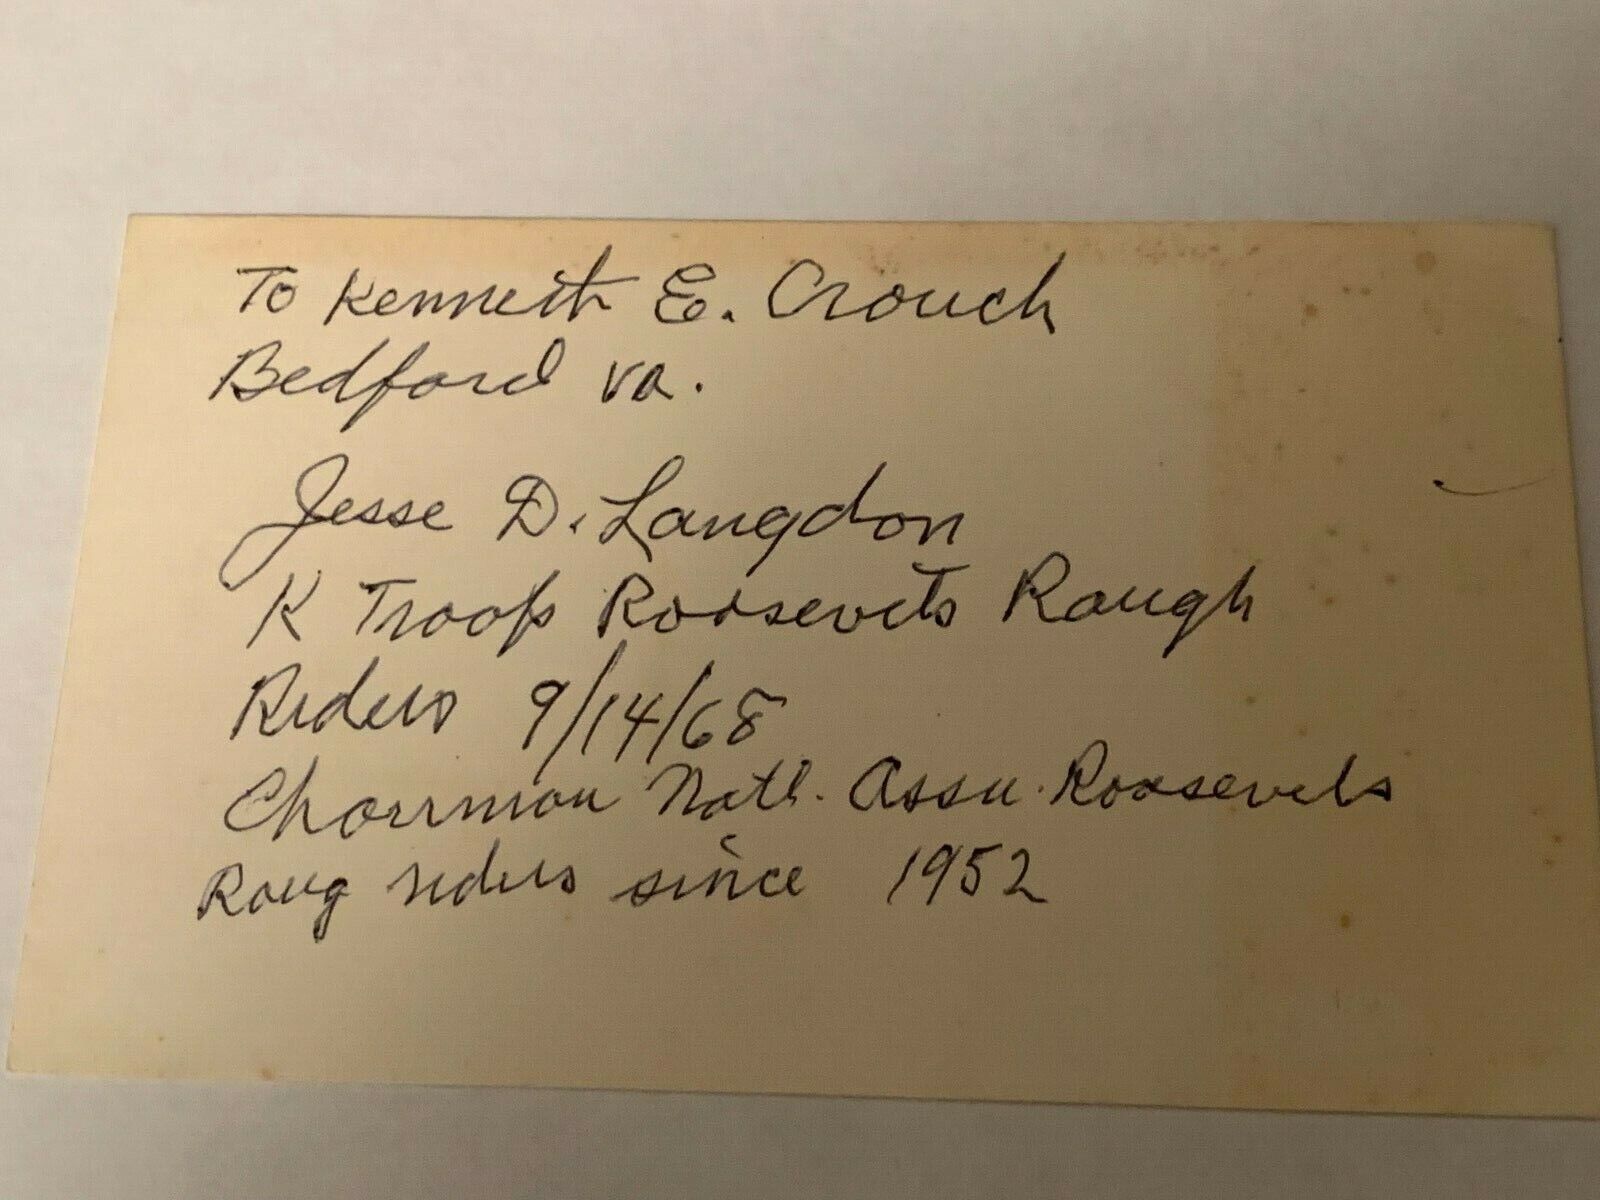 To Kenneth E. Crouch
Bedford Va.
Jesse D. Langdon
K Troop Roosevelts Rough
Riders 9/14/68
Chairman Natl. Assn. Roosevelts
Roug riders since 1952